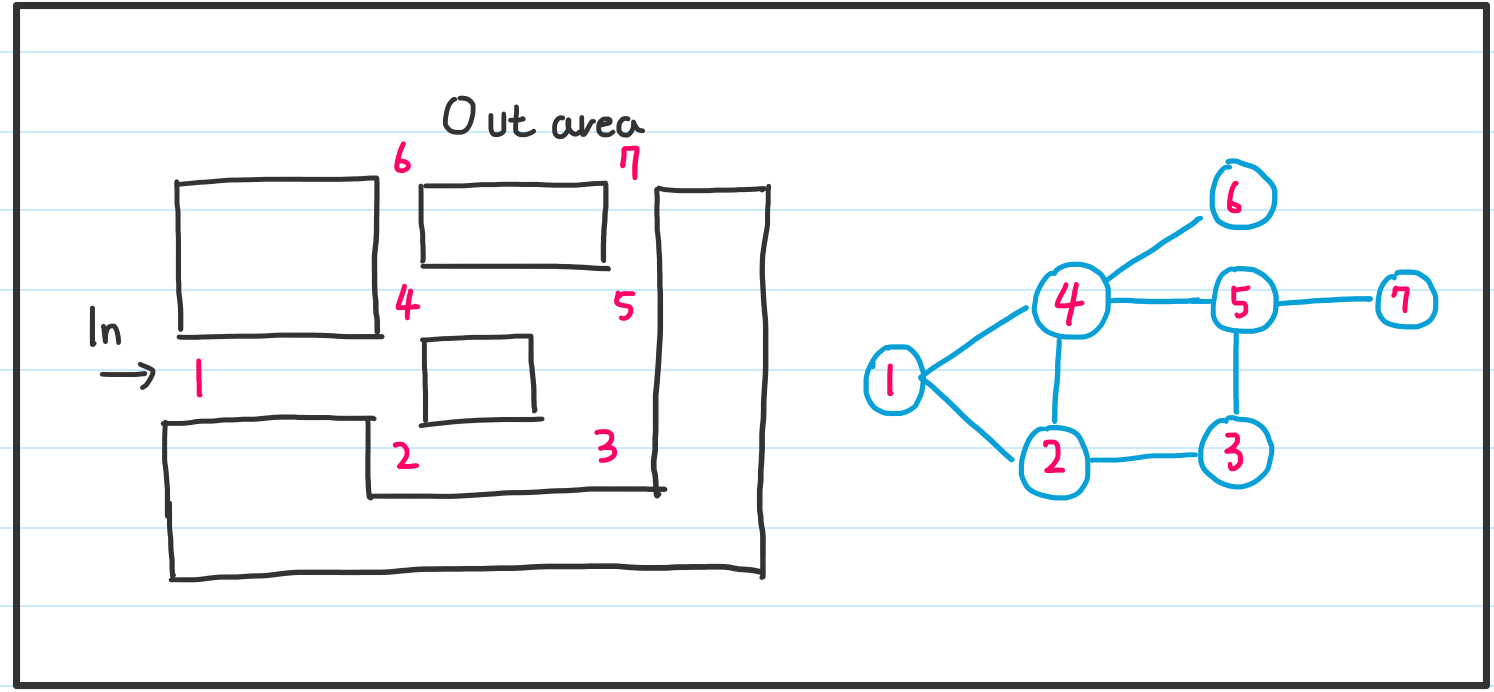 Out area
6 7
4 5
In
→ 1
2 3
6
4 5 7
1
2 3